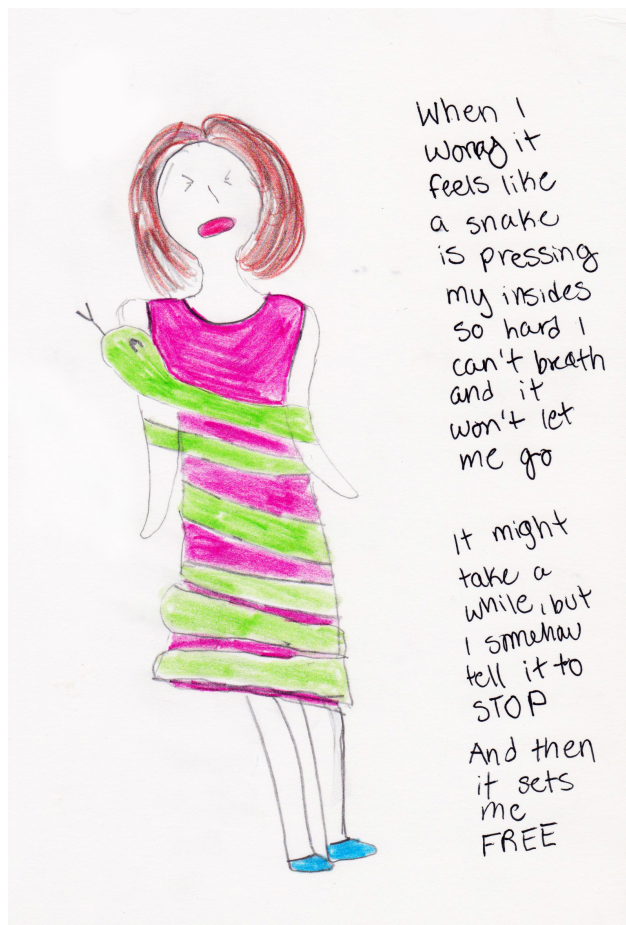 When I
worry it
feels like
a snake
is pressing
my insides
so hard I
can't breath
and it
won't let
me go
It might
take a
while, but
I somehow
tell it to
STOP
And then
it sets
me
FREE